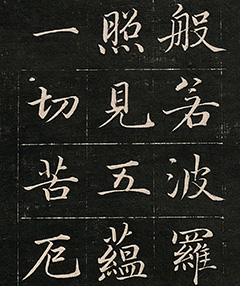 般若波羅
照見五蘊
一切苦厄